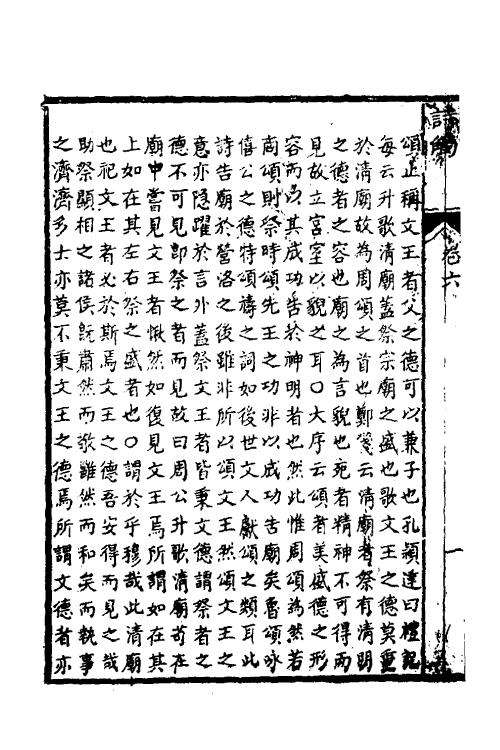 頌止稱文王者父之德可以兼子也孔穎達曰禮記
每云升歌清廟蓋祭宗廟之盛也歌文王之德莫重
於清廟故為周頌之首也鄭箋云清廟者祭有清明
之德者之容也廟之為言貌也死者精神不可得而
見故立宮室以貌之耳○大序云頌者美盛德之形
容而以其成功告於神明者也然此惟周頌為然若
商頌則祭時頌先王之功非以成功告廟矣魯頌咏
僖公之德特頌禱之詞如後世文人獻頌之類耳此
詩告廟於營洛之後雖非所以頌文王然頌文王之
意亦隱躍於言外蓋祭文王者皆秉文德謂祭者之
德不可見即祭之者而見故曰周公升歌清廟苟在
廟中嘗見文王者愀然如復見文王焉所謂如在其
上如在其左右祭之盛者也○謂於乎穆哉此清廟
也祀文王者必於斯焉文王之德吾安得而見之哉
助祭顯相之諸侯既肅然而敬雝然而和矣而執事
之濟濟多士亦莫不秉文王之德焉所謂文德者亦
卷六
一